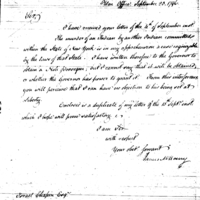 War Office September 23. 1796
Sir,
I have received your letter of the 4th of September inst.
The murder of an Indian by another Indian committed
within the State of New York is in my apprehension a case cognizable
by the laws of that State. I have written therefore to the Governor to
obtain a Noli prosequi, but I cannot say that it will be obtained,
or whether the Governor has power to grant it. From this interference
you will perceive that I can have no objection to his being set at
liberty.
Enclosed is a duplicate of my letter of the 10th Septr. inst.
which I hope will prove satisfactory.
I am Sir
with respect
Your obt. servant
James McHenry
Israel Chapin Esqr.